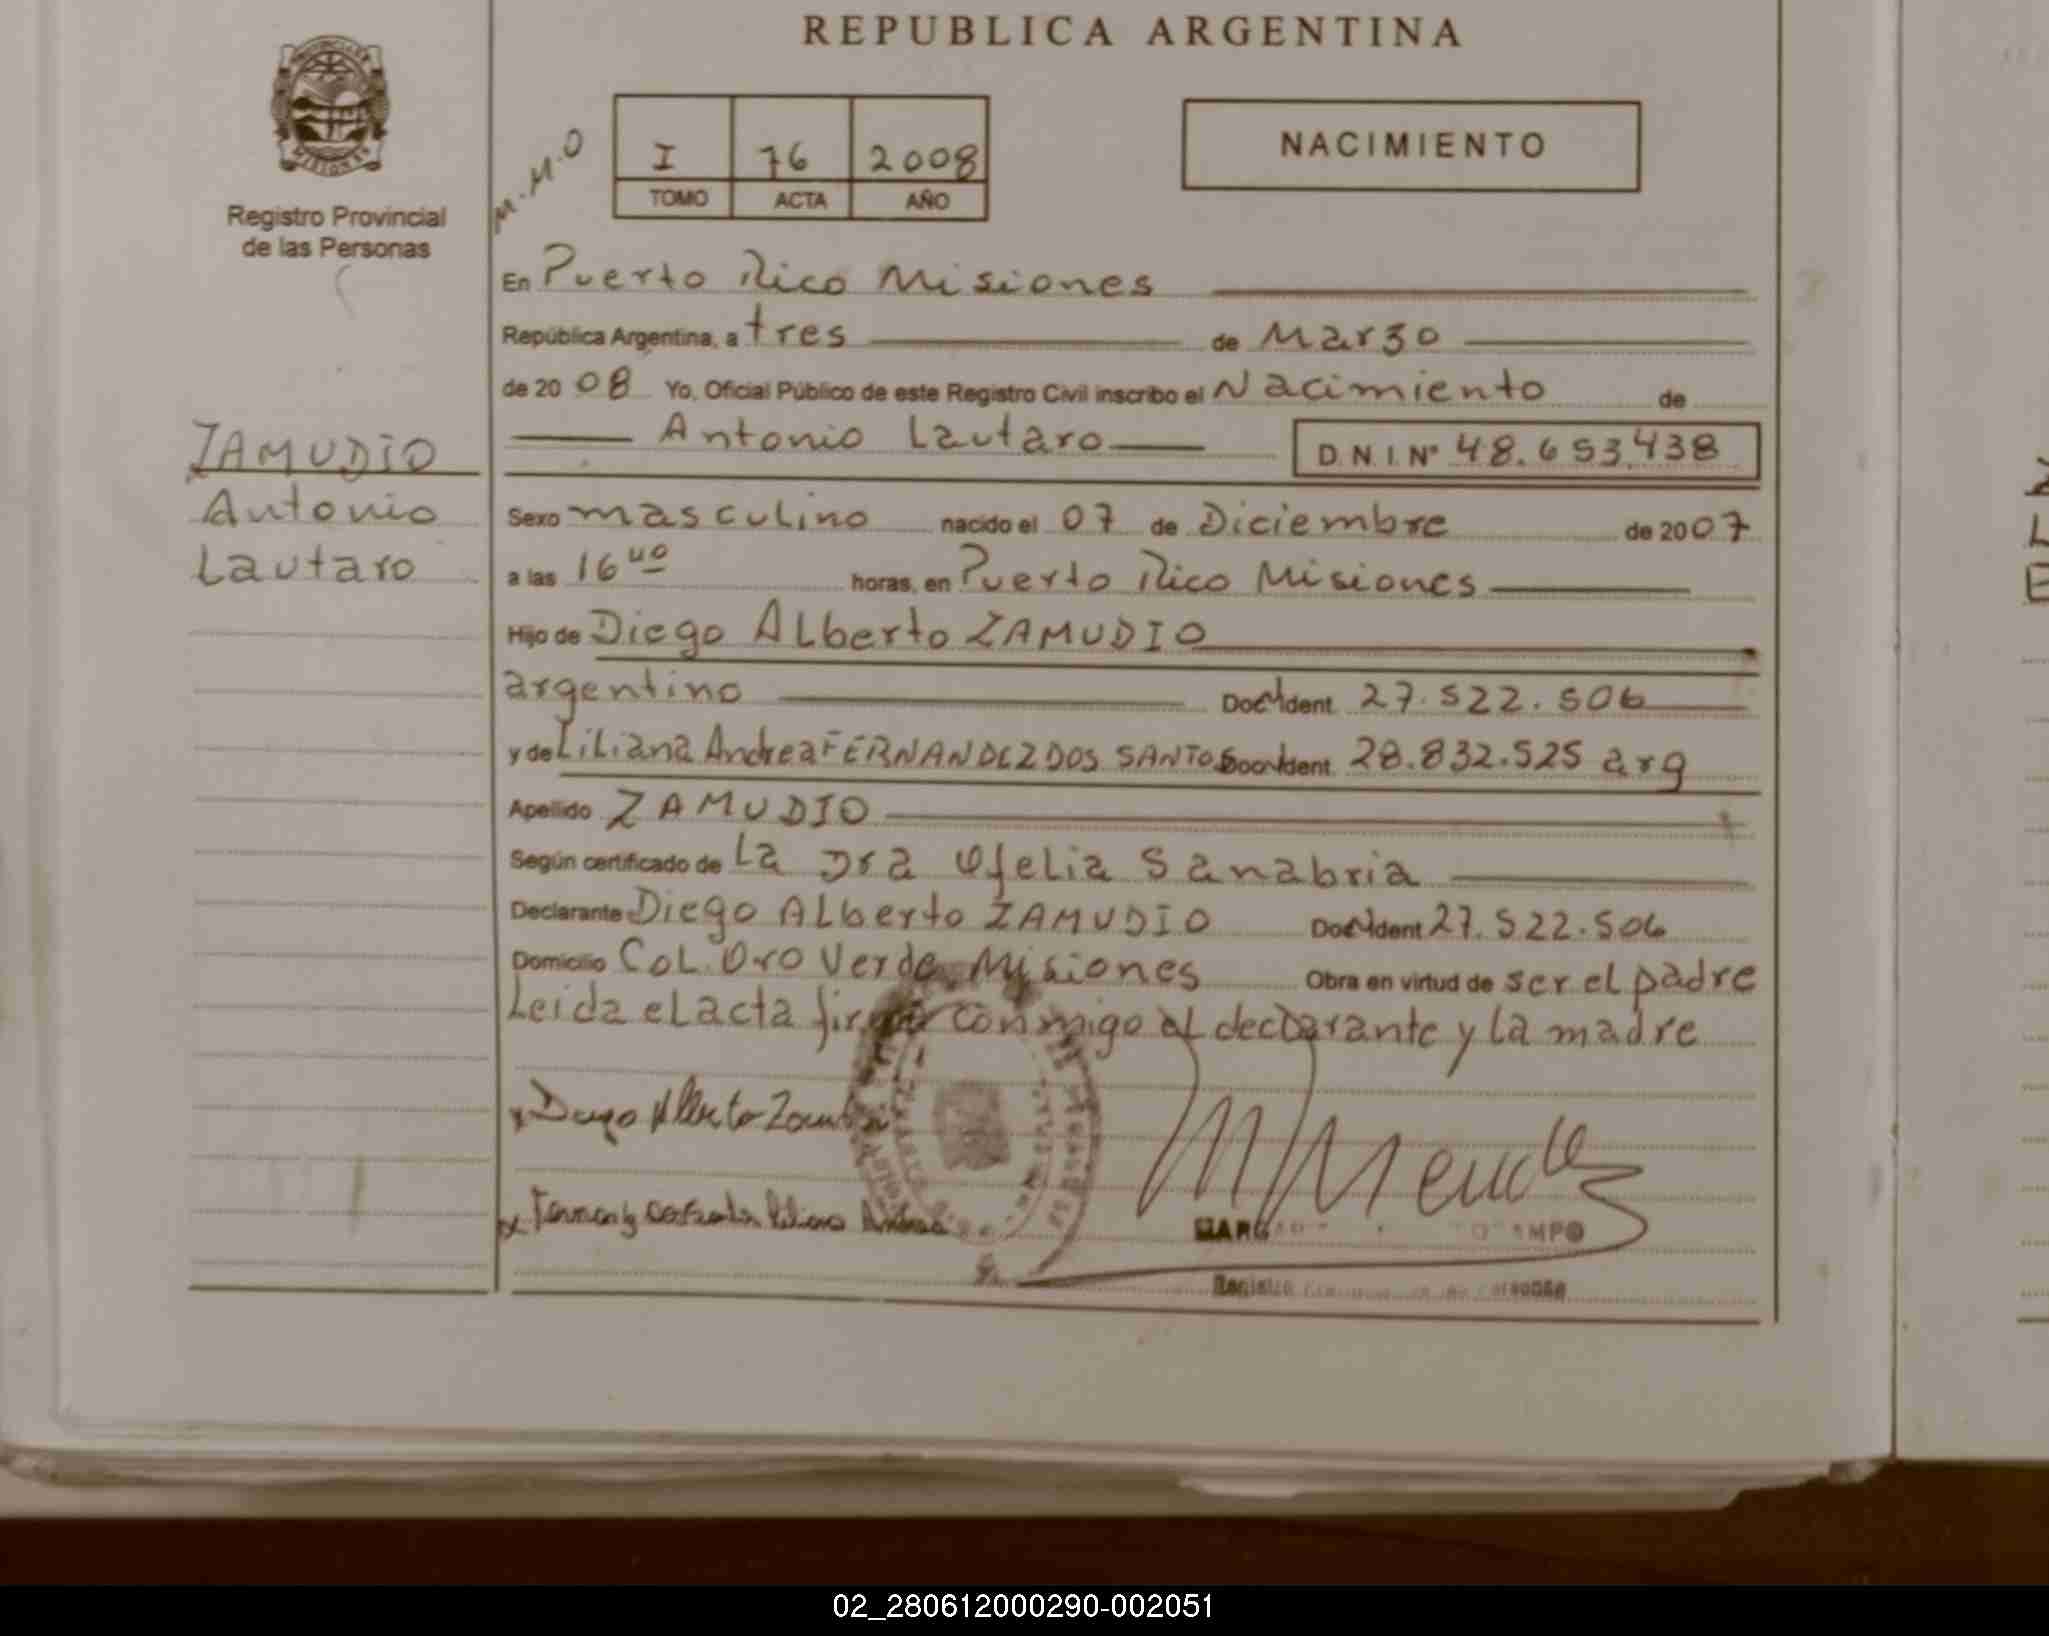 REPUBLICA ARGENTINA
Registro Provincial
de las Personas
M.M.O
I 76 2008
TOMO ACTA AÑO
NACIMIENTO
En Puerto Rico Misiones
República Argentina, a tres de Marzo
de 2008 Yo, Oficial Público de este Registro Civil inscribo el Nacimiento de
Antonio Lautaro D.N.I.Nº 48.653.438
ZAMUDIO
Antonio
Lautaro
Sexo masculino nacido el 07 de Diciembre de 2007
a las 16 40 horas, en Puerto Rico Misiones
Hijo de Diego ALberto ZAMUDIO
argentino Doc Ident. 27.522.506
y de LiLiana Andrea FERNANDEZ DOS SANTOS Doc Ident. 28.832.525 arg
Apellido ZAMUDIO
Según certificado de La Dra Ofelia Sanabria
Declarante Diego ALberto ZAMUDIO Doc Ident 27.522.506
Domicilio CoL. Oro Verde Misiones Obra en virtud de ser el padre
Leida el acta firma conmigo el declarante y la madre
x Diego Alberto
Andrea
M Mendez
Registro
02_280612000290-002051